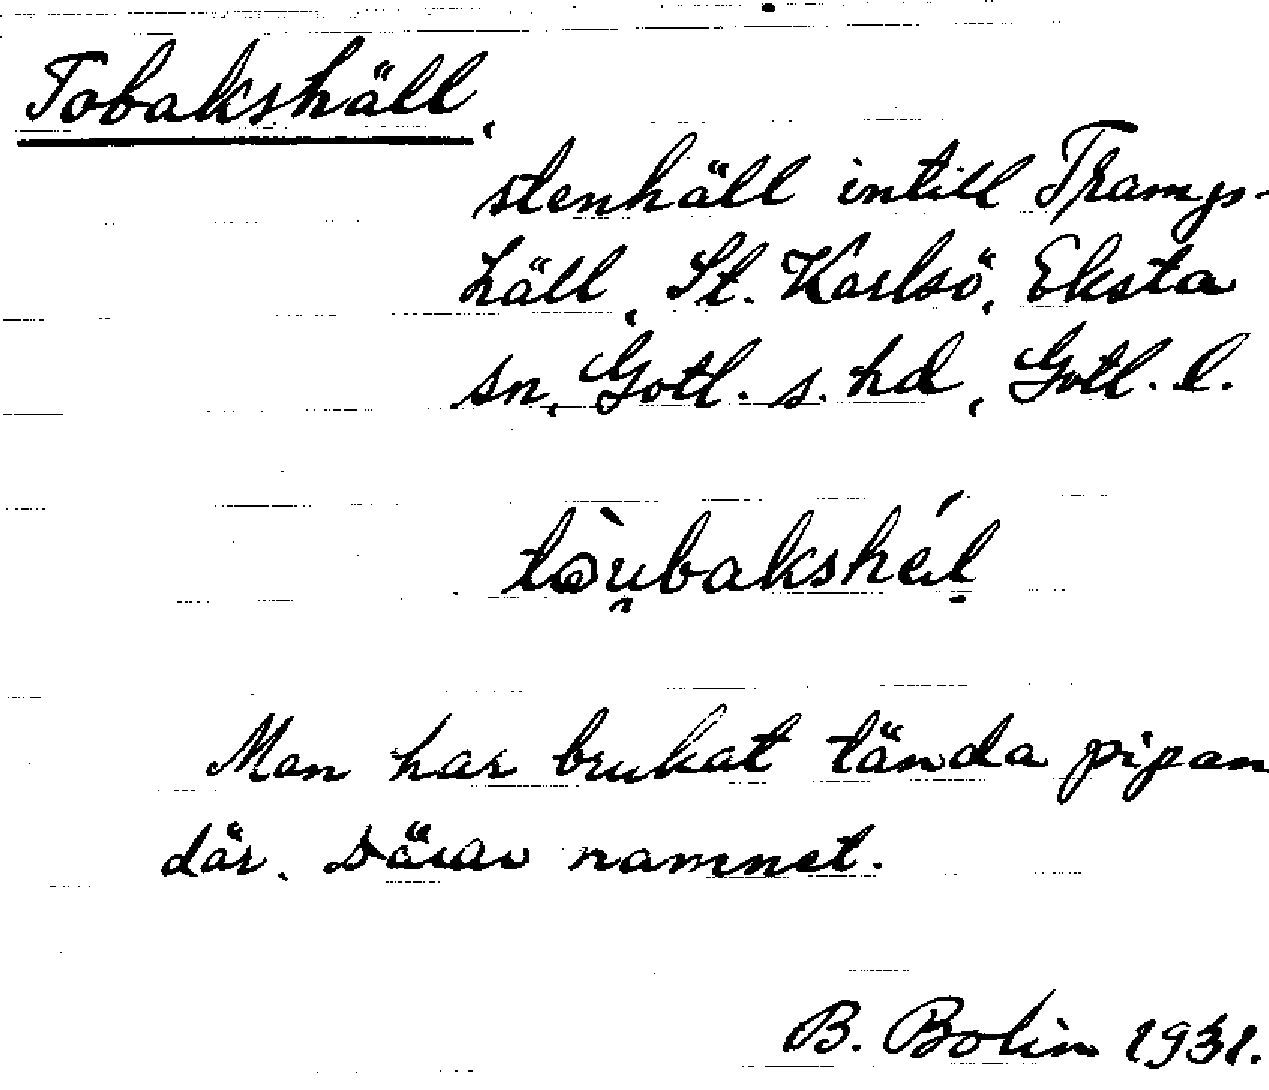 Tobakshäll,
stenhäll intill Tramps-
häll, St. Karlsö, Eksta
sn, Gotl. s. hd, Gotl. l.
Man har brukat tända pipan
där. Därav namnet.
B. Bolin 1931.